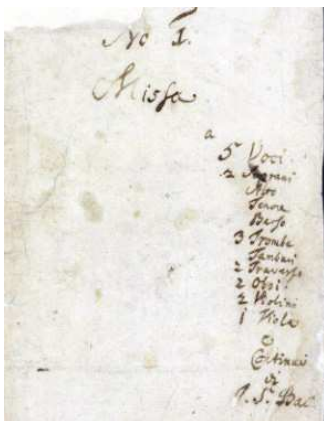 No 1.
Missa
a
5 Voci
2 Soprani
Alto
Tenore
Basso
3 Trombe
Tamburi
2 Travers
2 Oboi
2 Violini
1 Viola
e
Continuo
di
J. S. Bac